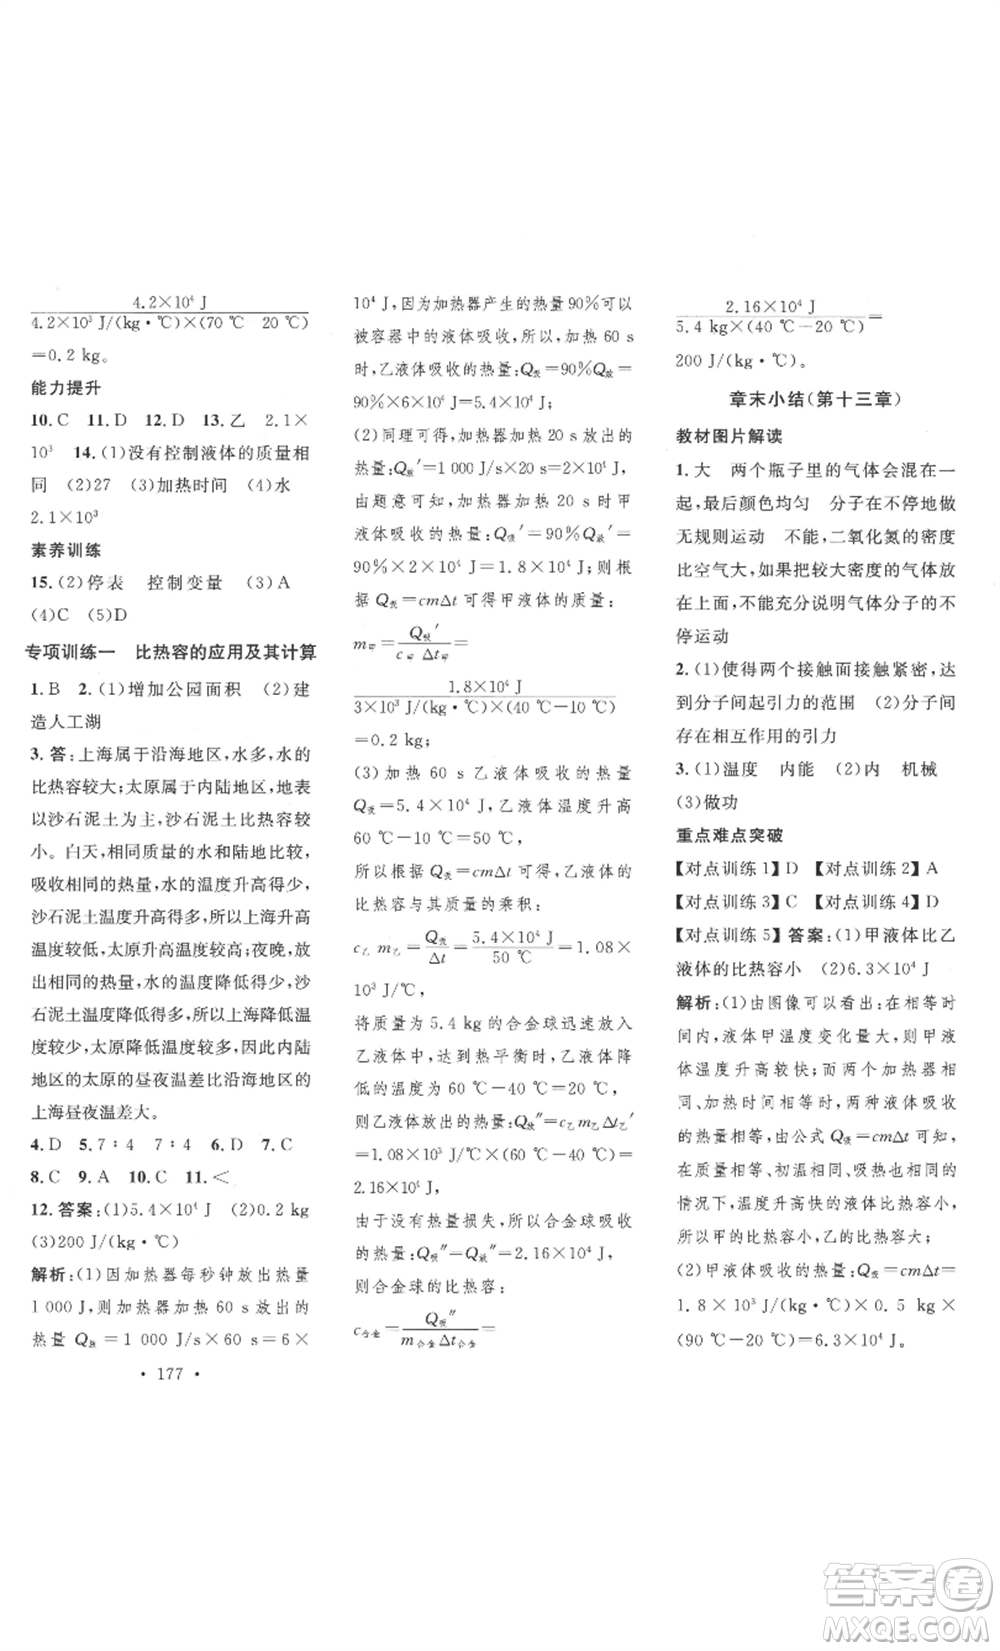 4.2×10⁴ J
4.2×10³ J/(kg·℃)×(70 ℃ 20 ℃)
=0.2 kg。
能力提升
10. C 11. D 12. D 13. 乙 2.1×
10³ 14. (1)没有控制液体的质量相
同 (2)27 (3)加热时间 (4)水
2.1×10³
素养训练
15. (2)停表 控制变量 (3)A
(4)C (5)D
专项训练一 比热容的应用及其计算
1. B 2. (1)增加公园面积 (2)建
造人工湖
3. 答:上海属于沿海地区,水多,水的
比热容较大;太原属于内陆地区,地表
以沙石泥土为主,沙石泥土的比热容较
小。白天,相同质量的水和陆地比较,
吸收相同的热量,水的温度升高得少,
沙石泥土温度升高得多,所以上海升高
温度较低,太原升高温度较高;夜晚,放
出相同的热量,水的温度降低得少,沙
石泥土温度降低得多,所以上海降低温
度少,太原降低温度多,因此内陆
地区的太原的昼夜温差比沿海地区的
上海昼夜温差大。
4. D 5. 7∶4 7∶4 6. D 7. C
8. C 9. A 10. C 11. <
12. 答案:(1)5.4×10⁴ J (2)0.2 kg
(3)200 J/(kg·℃)
解析:(1)因加热器每秒钟放出热量
1 000 J,则加热器加热 60 s 放出的
热量 Q放=1 000 J/s×60 s=6×
· 177 ·
10⁴ J,因为加热器产生的热量90%可以
被容器中的液体吸收,所以,加热 60 s
时,乙液体吸收的热量:Q吸=90%Q放=
90%×6×10⁴ J=5.4×10⁴ J;
(2)同理可得,加热器加热 20 s 放出的
热量:Q放′=1 000 J/s×20 s=2×10⁴ J,
由题意可知,加热器加热 20 s 时甲
液体吸收的热量:Q吸′=90%Q放′=
90%×2×10⁴ J=1.8×10⁴ J;则根
据 Q吸=cmΔt 可得甲液体的质量:
m甲=Q吸′/(c甲 Δt甲)=
1.8×10⁴ J
3×10³ J/(kg·℃)×(40 ℃-10 ℃)
=0.2 kg;
(3)加热 60 s 乙液体吸收的热量
Q吸=5.4×10⁴ J,乙液体温度升高
60 ℃-10 ℃=50 ℃,
所以,由 Q吸=cmΔt 可得,乙液体的
比热容与其质量的乘积:
c乙 m乙=Q吸/Δt=5.4×10⁴ J/50 ℃=1.08×
10³ J/℃,
将质量为 5.4 kg 的合金球迅速放入
乙液体中,达到热平衡时,乙液体降
低的温度为 60 ℃-40 ℃=20 ℃,
则乙液体放出的热量:Q放″=c乙 m乙 Δt乙′
=1.08×10³ J/℃×20 ℃=
2.16×10⁴ J,
由于没有热量损失,所以合金球吸收
的热量:Q吸″=Q放″=2.16×10⁴ J,
则合金球的比热容:
c合金=Q吸″/(m合金 Δt合金)=
2.16×10⁴ J
5.4 kg×(40 ℃-20 ℃)=
200 J/(kg·℃)。
章末小结(第十三章)
教材图片解读
1. 大 两个瓶子里的气体会混在一
起,最后颜色均匀 分子在不停地做
无规则运动 不能,二氧化氮的密度
比空气大,如果把较大密度的气体放
在上面,不能充分说明气体分子的不
停运动
2. (1)使得两个接触面接触紧密,达
到分子间起引力的范围 (2)分子间
存在相互作用的引力
3. (1)温度 内能 (2)内 机械
(3)做功
重点难点突破
【对点训练 1】D 【对点训练 2】A
【对点训练 3】C 【对点训练 4】D
【对点训练 5】答案:(1)甲液体比乙
液体的比热容小 (2)6.3×10⁴ J
解析:(1)由图像可以看出:在相等时
间内,液体甲温度变化量大,则甲液
体的温度升高较快;而两个加热器相
同、加热时间相等,所以两液体吸收
的热量相等,由公式 Q吸=cmΔt 可知,
质量相等、初温相同、吸热也相同的
情况下,温度升高快的液体比热容小,
所以甲的比热容小、乙的比热容大;
(2)甲液体吸收的热量:Q吸=cmΔt=
1.8×10³ J/(kg·℃)×0.5 kg×
(90 ℃-20 ℃)=6.3×10⁴ J。
答案圈
MXQE.COM